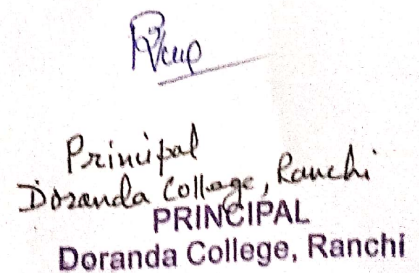 Principal
Doranda College, Ranchi
PRINCIPAL
Doranda College, Ranchi